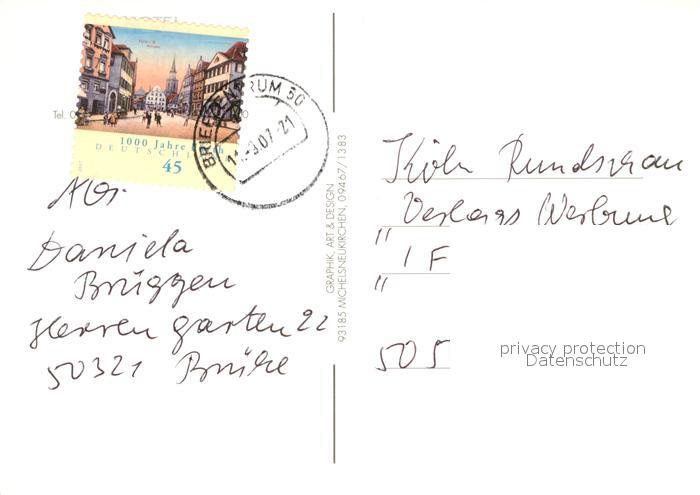 Tel. 0
1000 Jahre Fürth
DEUTSCHLAND
45
BRIEFZENTRUM 50
-9.07-21
Abs.
Daniela
Brüggen
Herrengarten 22
50321 Brühl
GRAPHIK, ART & DESIGN
93185 MICHELSNEUKIRCHEN, 09467/1383
Köln Rundschau
Verlags Werbung
" 1 F
"
505
privacy protection
Datenschutz